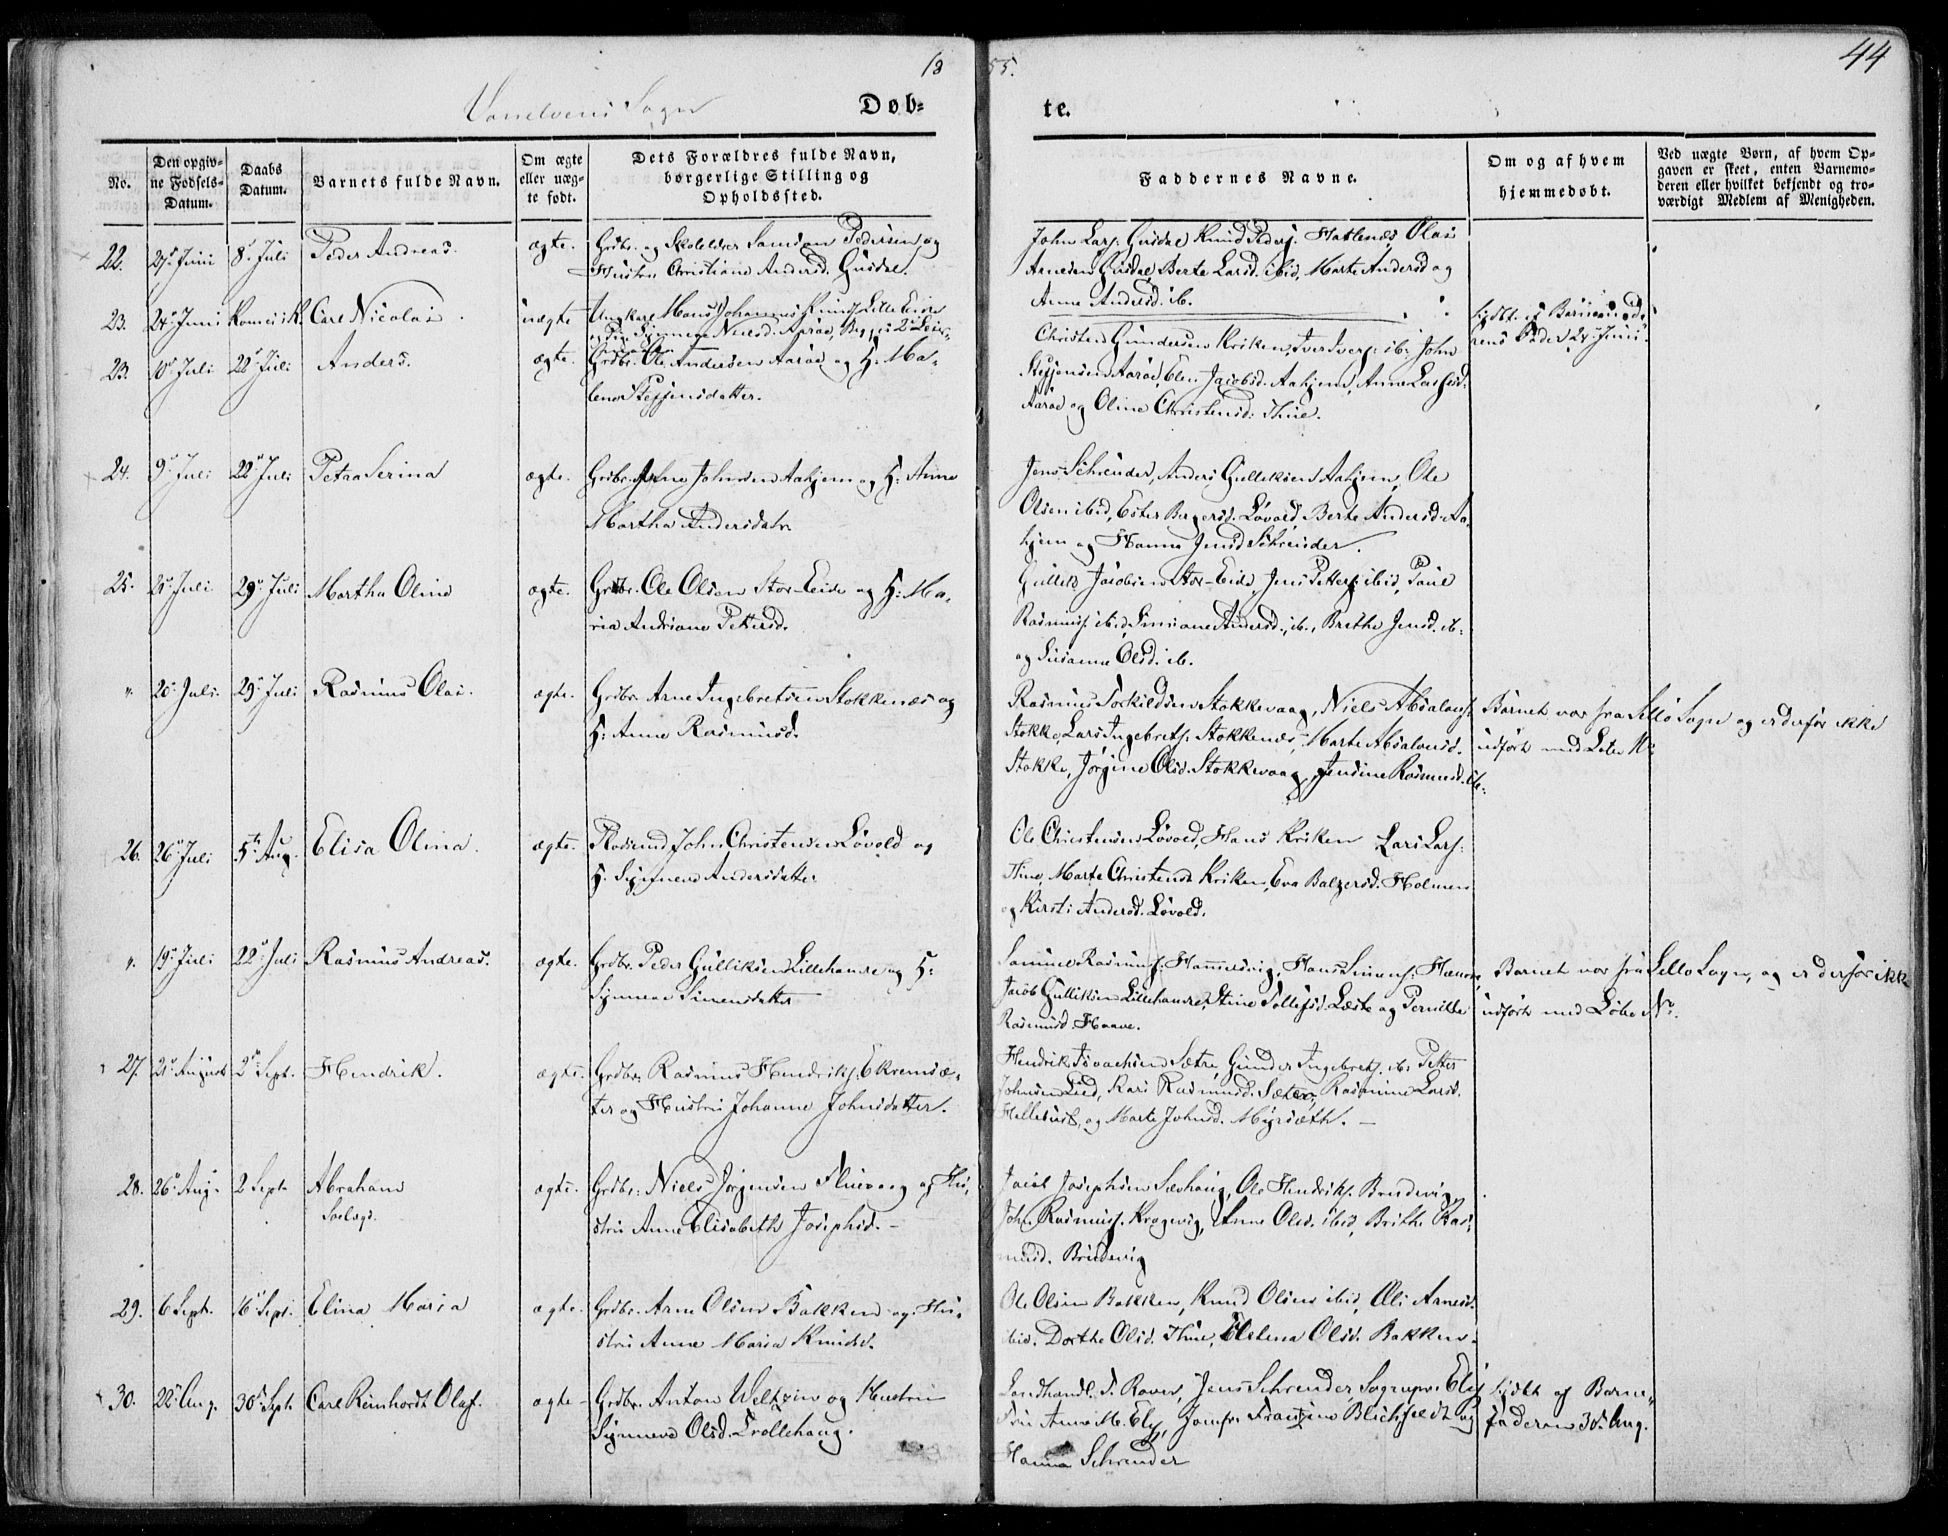 18 55.
44
Vanelvens Sogn
Døb- te.
No.
Den opgiv-
ne Fødsels-
Datum.
Daabs
Datum.
Barnets fulde Navn.
Om ægte
eller uæg-
te født.
Dets Forældres fulde Navn,
borgerlige Stilling og
Opholdssted.
Faddernes Navne.
Om og af hvem
hjemmedøbt.
Ved uægte Børn, af hvem Op-
gaven er skeet, enten Barnemo-
deren eller hvilket bekjendt og tro-
værdigt Medlem af Menigheden.
22. Juni 8 Juli Peder Andreas. ægte. Grdbr. og Skolelærer Samson Pedersen og
Hustru Christiane Andersd. Gusdal.
John Lars. Gusdal Knud Peders. Hatlenæs, Olai
Arnesen Gusdal, Berte Larsd. ibid, Marte Andersd og
Anne Andersd. ib.
23. 24 Juni Carl Nicolai. uægte Ungkarl Mons Johannes Knuds. Lille Eide
og Pige Synneve Nielsd. Aarøe, Begges 2
hjdbt. af Barnemode
rens Fader 24 Juni.
23. 10 Juli 22 Juli Anders. ægte. Grdbr. Ole Andersen Aarøe og H. Ma-
lene Steffensdatter.
Christen Gundersen Kriken, Iver Ivers. ib. John
Steffensen Aarøe, Elen Jacobsd. Aahjem, Anne Larsd.
Aarøe og Oline Christensd. Thue.
24. 9 Juli 22 Juli Petra Serina ægte. Grdbr. Arne Johnsen Aahjem og H: Anne
Martha Andersdatr.
Jens Schrøuder, Anders Gulliksen Aahjem, Ole
Olsen ibid, Ester Løvold, Berte Andersd. Aa-
hjem og Hanna Jensd Schreuder.
25. Juli 29 Juli Martha Oline ægte. Grdbr. Ole Olsen Stor-Eide og H: Ma-
ria Andriane Pettersd.
Gullik Jacobsen Stor-Eide, Jens Petters. ibid, Paul
Rasmuss. ibid, Simiane Andersd. ib., Brithe Jensd. ib.
og Susanne Olsd. ib.
" 20 Juli. 29 Juli Rasmus Olai. ægte. Grdbr. Arne Ingebretsen Stokkenæs og
H: Anne Rasmusd.
Rasmus Torkildsen Stokkevaag, Niels Absalons.
Stokke, Lars Ingebrets. Stokkenæs, Marte Absalonsd.
Stokke, Jørgine Olsd. Stokkevaag, Jensine Rasmusd. ib.
Barnet var fra Sellø Sogn og er derfor ikke
udført med Løbe No
26. 26 Juli 5te Aug. Elisa Olina. ægte. Pladsmd John Christensen Løvold og
H. Synneve Andersdatter
Ole Christensen Løvold, Hans Kriken Lars Lars.
Thue, Marte Christensd Kriken, Eva Balzersd. Holmen
og Kirsti Andersd. Løvold.
" 19 Juli 22 Juli Rasmus Andreas. ægte. Grdbr. Peder Gulliksen Lillehamre og H:
Synneve Simensdatter
Samuel Rasmuss. Hammersvig, Hans Simens.
Jacob Gulliksen Lillehamre, Stine Tollefsd. Læste og Pernille
Rasmusd. Haave.
Barnet var fra Sellø Sogn, og er derfor ikke
udført med Løbe No.
27. August 2 Sept. Hendrik. ægte. Grdbr. Rasmus Hendriks. Ekremsæ-
ter og Hustru Johanne Johnsdatter.
Hendrik Sætre, Gunder Ingebrets. ib. Petter
Johnsen Lied, Kari Rasmusd. Sæter, Rasmine Larsd.
Hellebust, og Marte Johnsd. Myrsæth. -
28. 26 Aug. 2 Sept. Abraham
ægte. Grdbr: Niels Jørgensen Fluevaag og Hu-
stru Anne Elisabeth Josephsd. -
Jacob Josephsen Sævhaug, Ole Hendriks. Brudevig,
John Rasmuss. Kragevig, Anne Olsd. ibid, Brithe Ras-
musd. Brudevig
29. 6 Sept. 16 Sept. Elina Maria ægte. Grdbr. Arne Olsen Bakken og Hu-
stru Anne Maria Knudsd.
Ole Olsen Bakken, Knud Olsen ibid, Oli Arnesd.
ibid. Dorthe Olsd. Thue, Helena Olsd. Bakken.
30. 22 Aug. 30 Sept. Carl Reinhardt Olaf. ægte Grdbr. Anton Weltzin og Hustru
Synneve Olsd. Trollehaug.
Landhandl. T. Raven, Jens Schreuder Sognepr. Ely
Fru Anne M. Ely, Jomfr. Frantzine Blichfeldt og
Hanna Schreuder
hjdbt af Barne-
faderen 30 Aug.